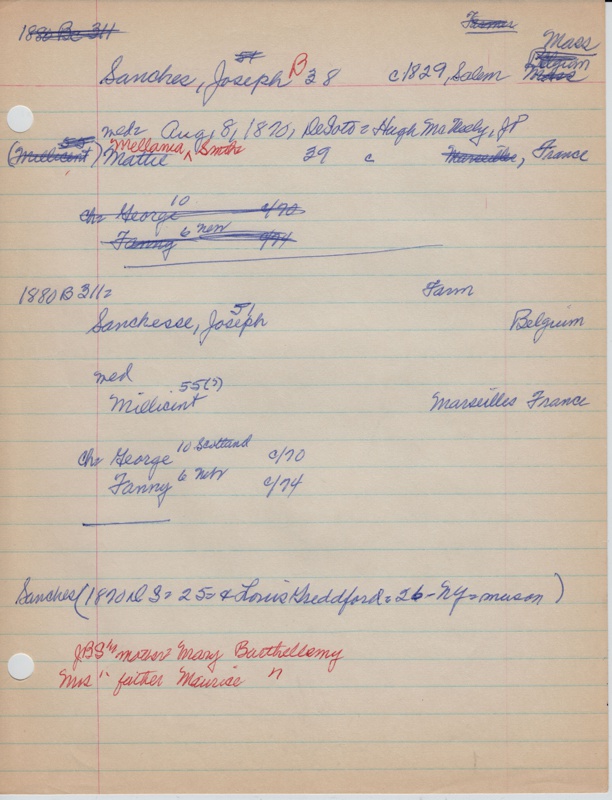 1880 Bc 311 Farmer
Mass
54 Belgium
Sanches, Joseph B 38 c1829, Salem Mass
med= Aug, 8, 1870, DeSoto = Hugh McNeely, JP
55 Mellania Smith
(Millicent) Mattie ^ 39 c Marseilles, France
ch= George 10 c/70
Fanny 6 Neb c/74
1880 B 311= Farm
Sanchesse, Joseph 51 Belgium
med
Millicint 55(?) Marseilles France
ch= George 10 Scotland c/70
Fanny 6 Neb c/74
Sanches (1870 D S = 25 = & Louis Greddford = 26 - NY = mason)
JBS's mother Mary Barthellemy
Mrs " father Maurice "